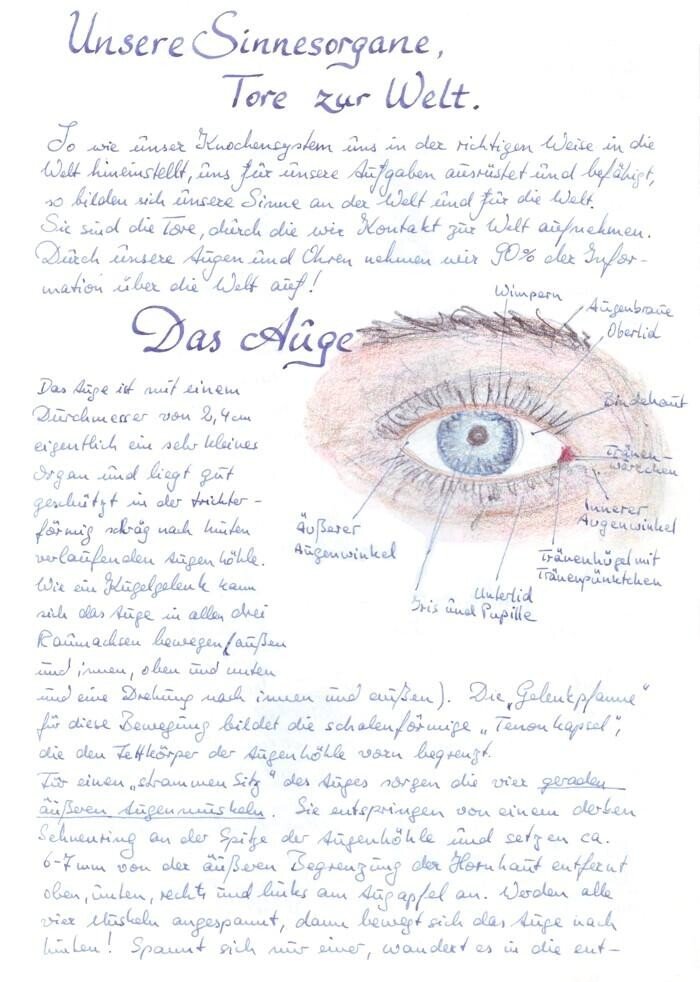 Unsere Sinnesorgane,
Tore zur Welt.
So wie unser Knochensystem uns in der richtigen Weise in die
Welt hineinstellt, uns für unsere Aufgaben ausrüstet und befähigt,
so bilden sich unsere Sinne an der Welt und für die Welt.
Sie sind die Tore, durch die wir Kontakt zur Welt aufnehmen.
Durch unsere Augen und Ohren nehmen wir 90% der Infor-
mation über die Welt auf!
Das Auge
Wimpern
Augenbraue
Oberlid
Bindehaut
Tränen-
wärzchen
Innerer
Augenwinkel
Tränenhügel mit
Tränenpünktchen
Unterlid
Iris und Pupille
äußerer
Augenwinkel
Das Auge ist mit einem
Durchmesser von 2,4cm
eigentlich ein sehr kleines
Organ und liegt gut
geschützt in der trichter-
förmig schräg nach hinten
verlaufenden Augenhöhle.
Wie ein Kugelgelenk kann
sich das Auge in allen drei
Raumachsen bewegen (außen
und innen, oben und unten
und eine Drehung nach innen und außen). Die „Gelenkpfanne"
für diese Bewegung bildet die schalenförmige „Tenonkapsel",
die den Fettkörper der Augenhöhle vorn begrenzt.
Für einen „strammen Sitz" des Auges sorgen die vier geraden
äußeren Augenmuskeln. Sie entspringen von einem derben
Sehnenring an der Spitze der Augenhöhle und setzen ca.
6-7mm von der äußeren Begrenzung der Hornhaut entfernt
oben, unten, rechts und links am Augapfel an. Werden alle
vier Muskeln angespannt, dann bewegt sich das Auge nach
hinten! Spannt sich nur einer, wandert es in die ent-